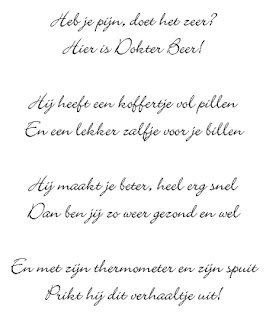 Heb je pijn, doet het zeer?
Hier is Dokter Beer!
Hij heeft een koffertje vol pillen
En een lekker zalfje voor je billen
Hij maakt je beter, heel erg snel
Dan ben jij zo weer gezond en wel
En met zijn thermometer en zijn spuit
Prikt hij dit verhaaltje uit!